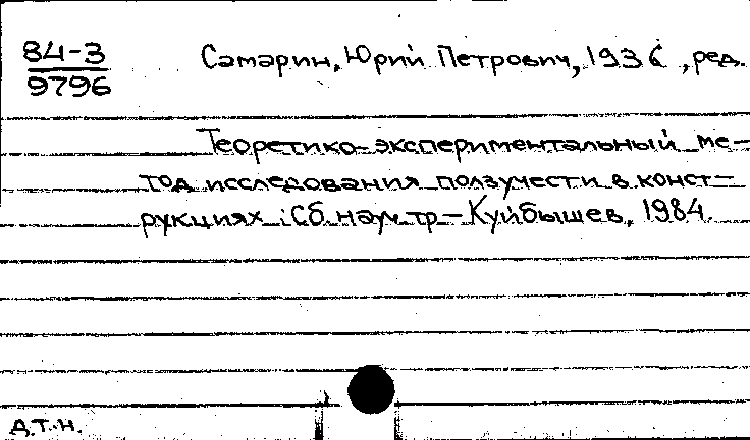 84-3
9796
Самарин, Юрий Петрович, 1936, ред.
Теоретико-экспериментальный ме-
тод исследования ползучести в конст-
рукциях : Сб. науч. тр – Куйбышев, 1984.
Д.Т.Н.